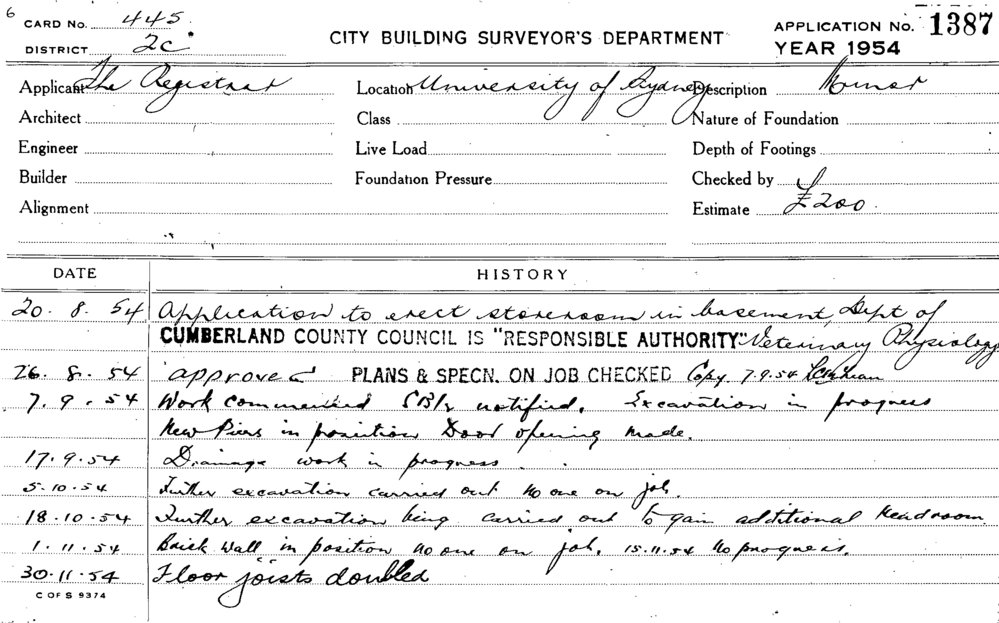 6
CARD No. 445
DISTRICT 2c
CITY BUILDING SURVEYOR'S DEPARTMENT
APPLICATION No. 1387
YEAR 1954
Applicant The Registrar Location University of Sydney Description Minor
Architect Class Nature of Foundation
Engineer Live Load Depth of Footings
Builder Foundation Pressure Checked by
Alignment Estimate £200
DATE HISTORY
20. 8. 54 Application to erect storeroom in basement, Dept of
CUMBERLAND COUNTY COUNCIL IS "RESPONSIBLE AUTHORITY" Veterinary Physiology
26. 8. 54 approved PLANS & SPECN. ON JOB CHECKED Copy 7.9.54
7. 9. 54 Work commenced notified. Excavation in progress
New Piers in position Door opening made.
17.9.54 Drainage work in progress.
5.10.54 Further excavation carried out no one on job.
18.10.54 Further excavation being carried out to gain additional headroom
1.11.54 Brick wall in position no one on job. 15.11.54 No progress.
30.11.54 Floor joists doubled
C OF S 9374